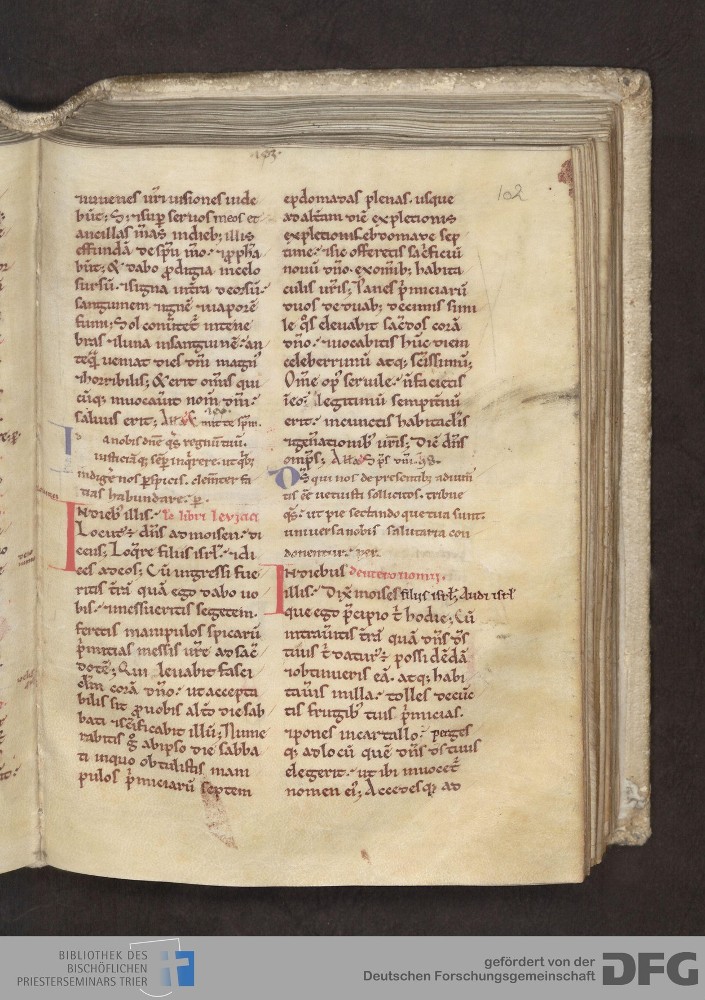 102
iuuenes uri uisiones uide
būt; S; ⁊ sup seruos meos et
ancillas m̄as indieb; illis
effundā de spū mō. ⁊ ꝓphā
būt; & dabo ꝓdigia incelo
sursū. ⁊ signa interra deorsū.
sanguinem ⁊ ignē ⁊ uaporē
fumi; Sol conūtet intene
bras ⁊ luna insanguinē. an
teq̄ ueniat dies dn̄i magn'
⁊ horribilis; & erit om̄is qui
cūq; inuocauit nom̄ dn̄i.
saluus erit;
a nobis dn̄e q̄s regnū tuū.
iusticiāq; sēp inq̄rere. ut q̄b;
indigere nos ꝑspicis. clem̄ter fa
cias habundare. ꝑ.
Indieb' illis. Lc libri leuitici
Locut' ē dn̄s ad moisen. di
cens; Loq̄re filiis isrl'. ⁊ di
ces ad eos; Cū ingressi fue
ritis t̄rā quā ego dabo uo
bis. ⁊ messueritis segetem.
feretis manipulos spicarū
p̄mitias messis ur̄e ad sac̄
dotē; Qui leuabit fasci
culū corā dn̄o. ut accepta
bilis sit ꝓ uobis alt̄o die sab
bati ⁊ sc̄ificabit illū; Nume
rabitis g̊ ab ipso die sabba
ti inquo obtulistis mani
pulos p̄miciarū septem
epdomadas plenas. usque
ad alt̄am diē expletionis
expletionis ebdomade sep
time. ⁊ sic offeretis sac̄ficiū
nouū dn̄o. ex om̄ib; habita
culis ur̄is; Panes p̄miciarū
duos de duab; decimis simi
le q̄s eleuabit sac̄dos corā
dn̄o. ⁊ uocabitis hūc diem
celeberrimū atq; sc̄issimū;
Om̄e op' seruile. n̄ facietis
in eo. legitimū sempit̄nū
erit. in cunctis habitac̄lis
⁊ gen̄ationib' ur̄is; Dic̄ dn̄s
om̄ps;
Ds̄ qui nos de presentib; adium̄
tis ēē uetuisti sollicitos. tribue
q̄s. ut pie sectando que tua sunt.
uniuersa nobis salutaria con
donentur. per
In diebus deuteronomii.
illis. Dix̄ moises filiis isrl'; Audi isrl'
que ego p̄cipio t̄ hodie; Cū
intrauītis t̄rā quā dn̄s d̄s
tuus t̄ datur' ē. possidēdā
⁊ obtinueris eā. atq; habi
tau̅is in illa. tolles de cūc
tis frugib' tuis p̄micias.
⁊ pones in cartallo. pergēs
q; ad locū quē dn̄s d̄s tuus
elegerit. ut ibi inuocet̄
nomen ei'; Accedesq; ad
BIBLIOTHEK DES
BISCHÖFLICHEN
PRIESTERSEMINARS TRIER
gefördert von der
Deutschen Forschungsgemeinschaft
DFG